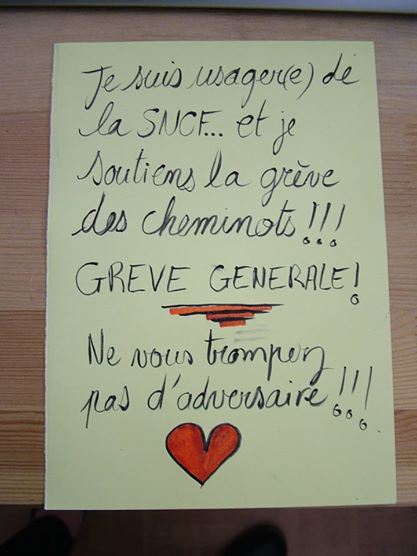 Je suis usager(e) de
la SNCF... et je
soutiens la grève
des cheminots!!!
GREVE GENERALE!
Ne vous trompez
pas d'adversaire!!!